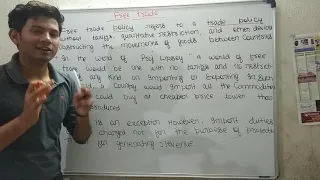 Free Trade
Free trade policy refers to a trade policy
without tariffs, qualitative restriction, and other devices
obstructing the movements of goods between countries
In the word of Prof Lipsey, a world of free
trade would be one with no tariffs and no restricti
any kind on importing or exporting. In such
a country would import all the commodities
could buy at cheaper price lower than
is an exception However, import duties
charged not for the purpose of
for generating revenue